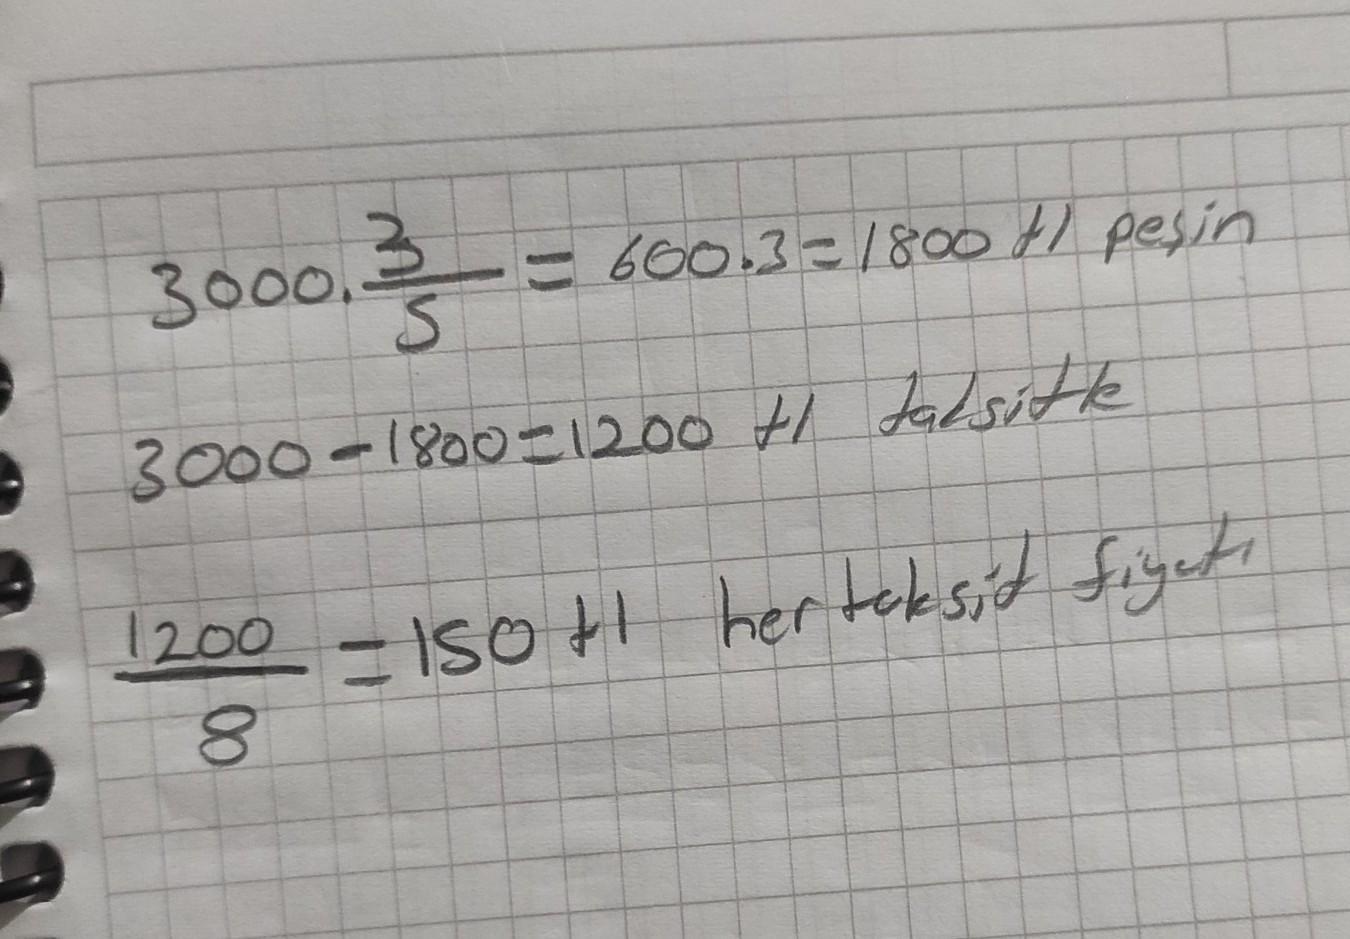 3000. 3/5 = 600.3=1800 tl peşin
3000-1800=1200 tl talsitk
1200/8 =150 tl her taksit fiyatı